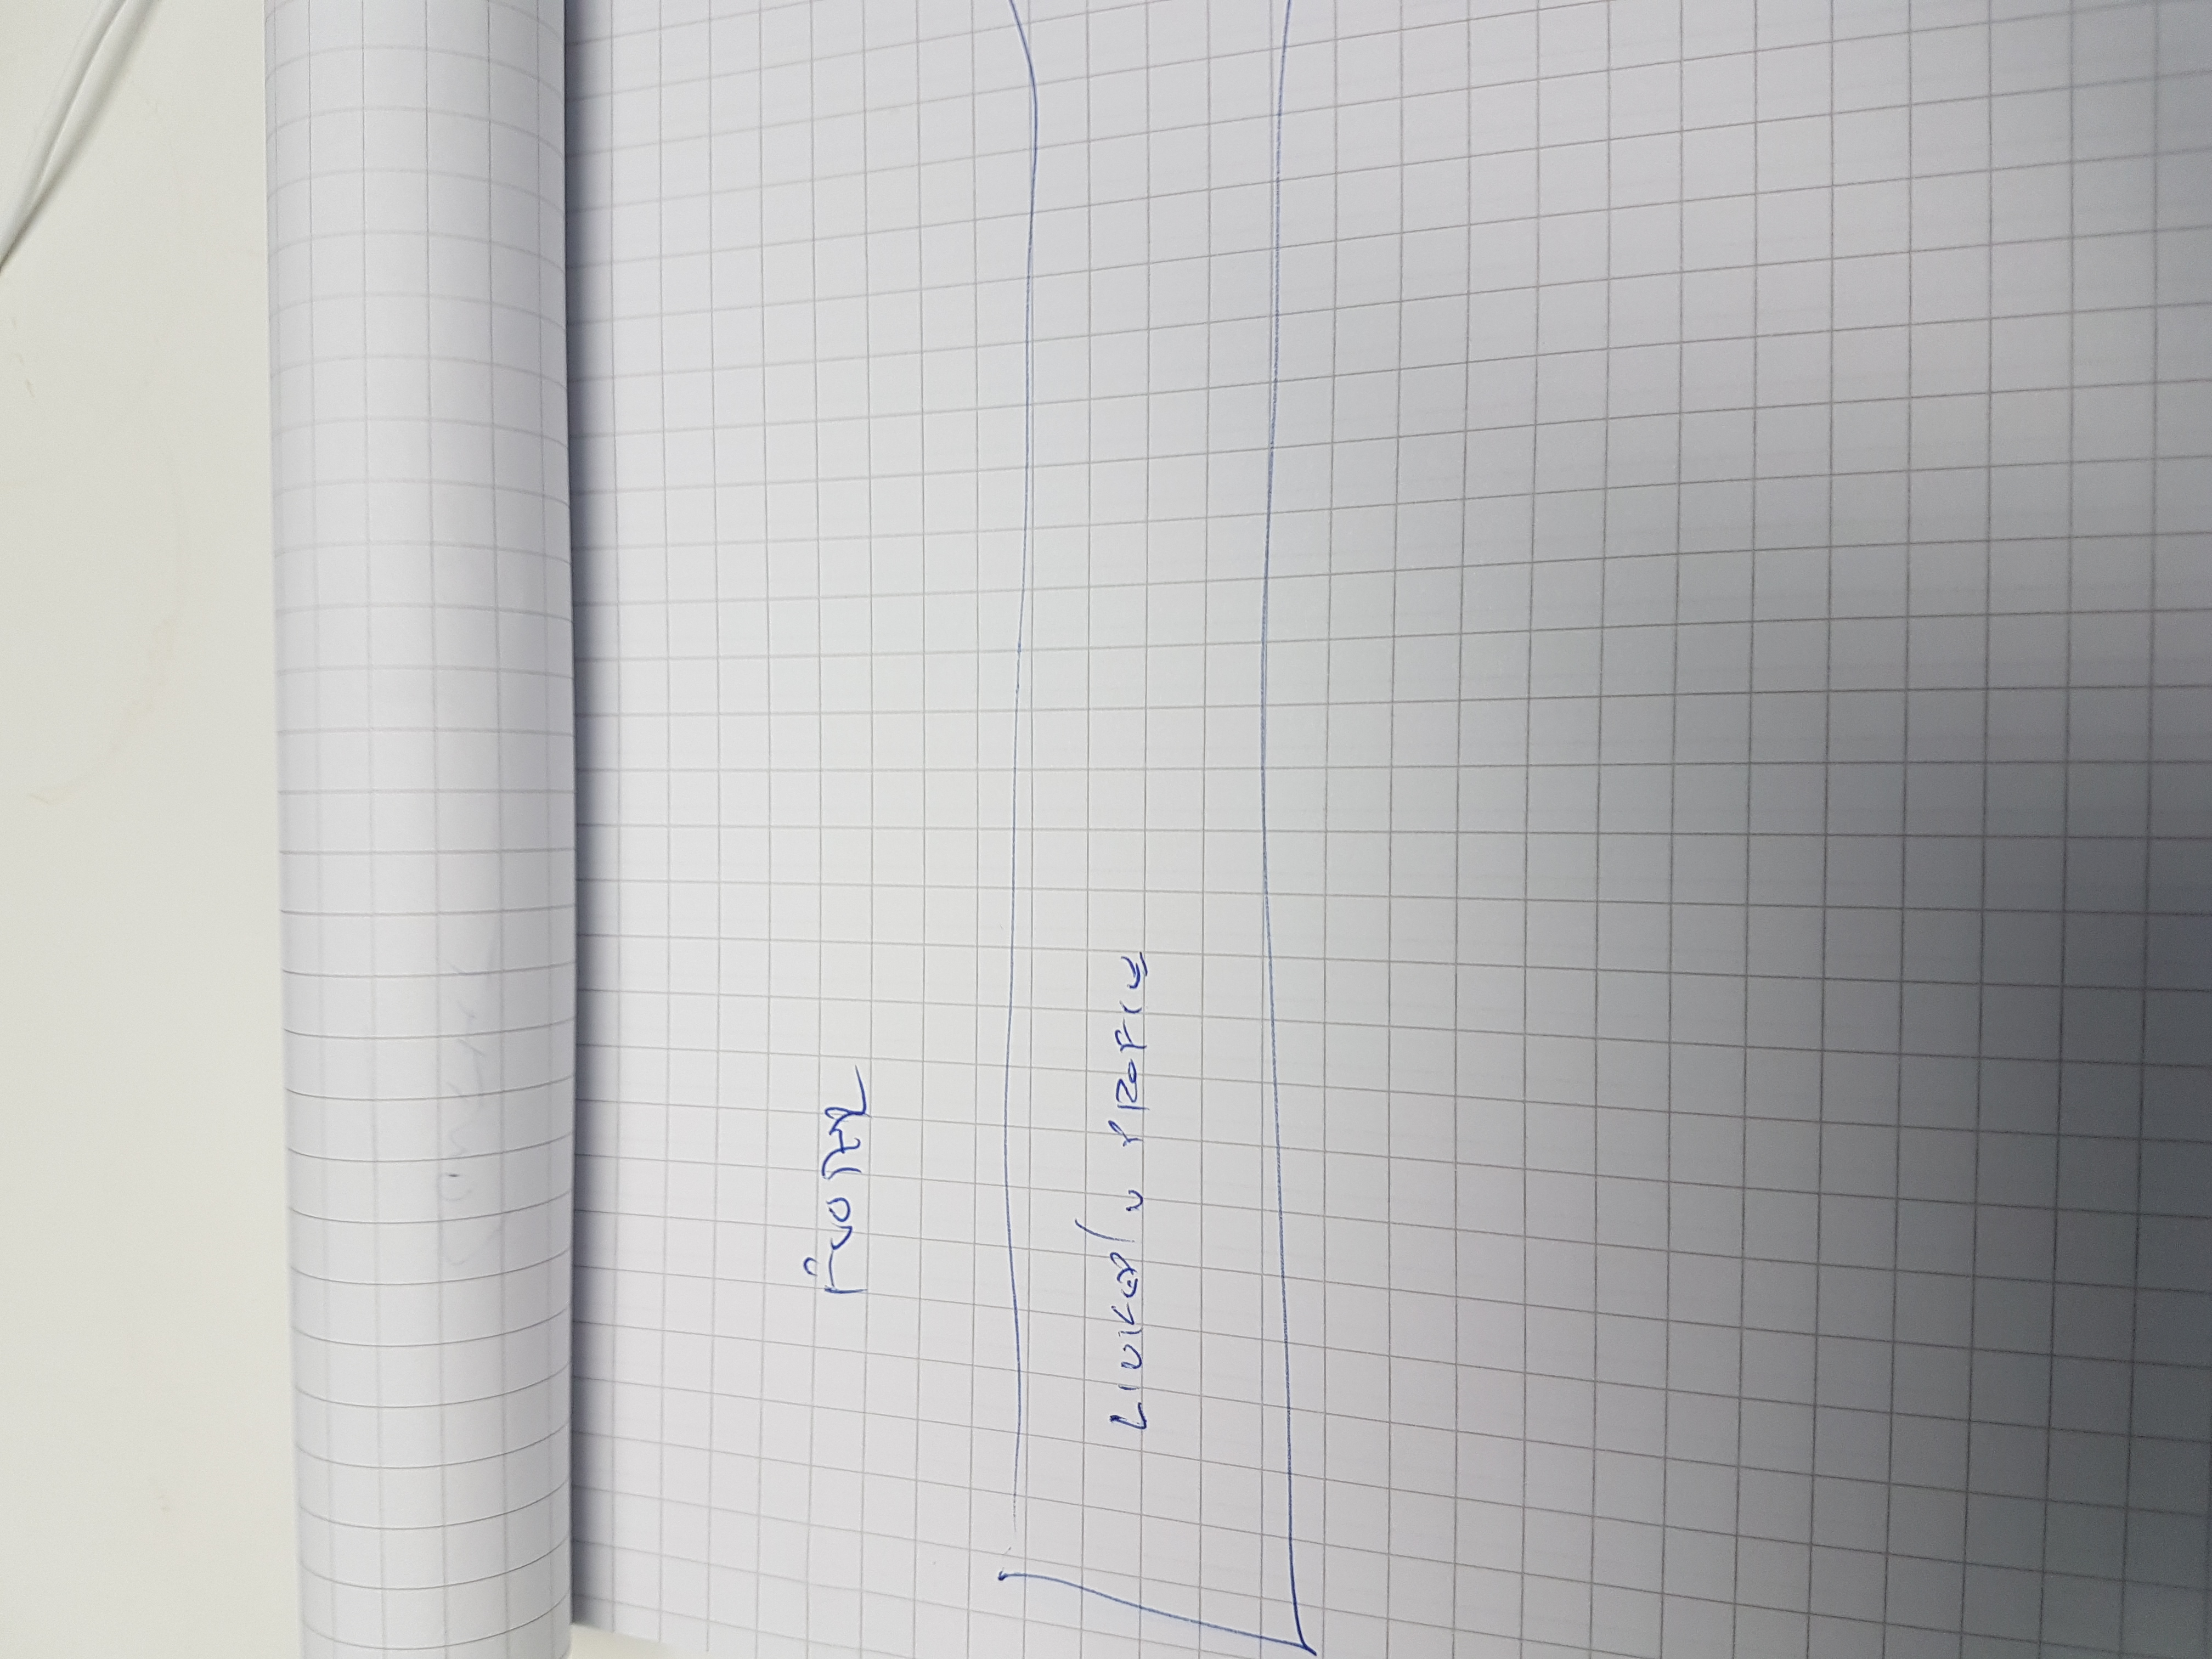 FOOTER
LINKEDIN PROFILE